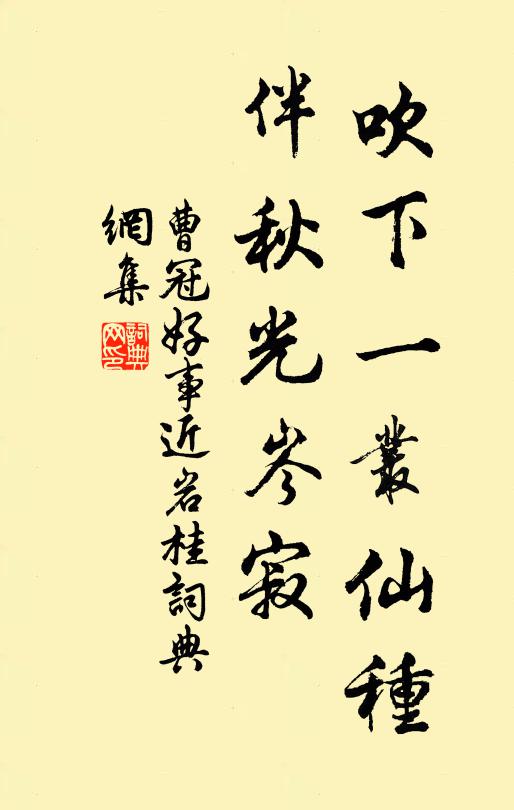 吹下一叢仙種
伴秋光岑寂
曹冠好事近岩桂詞典
網集
詞典网印